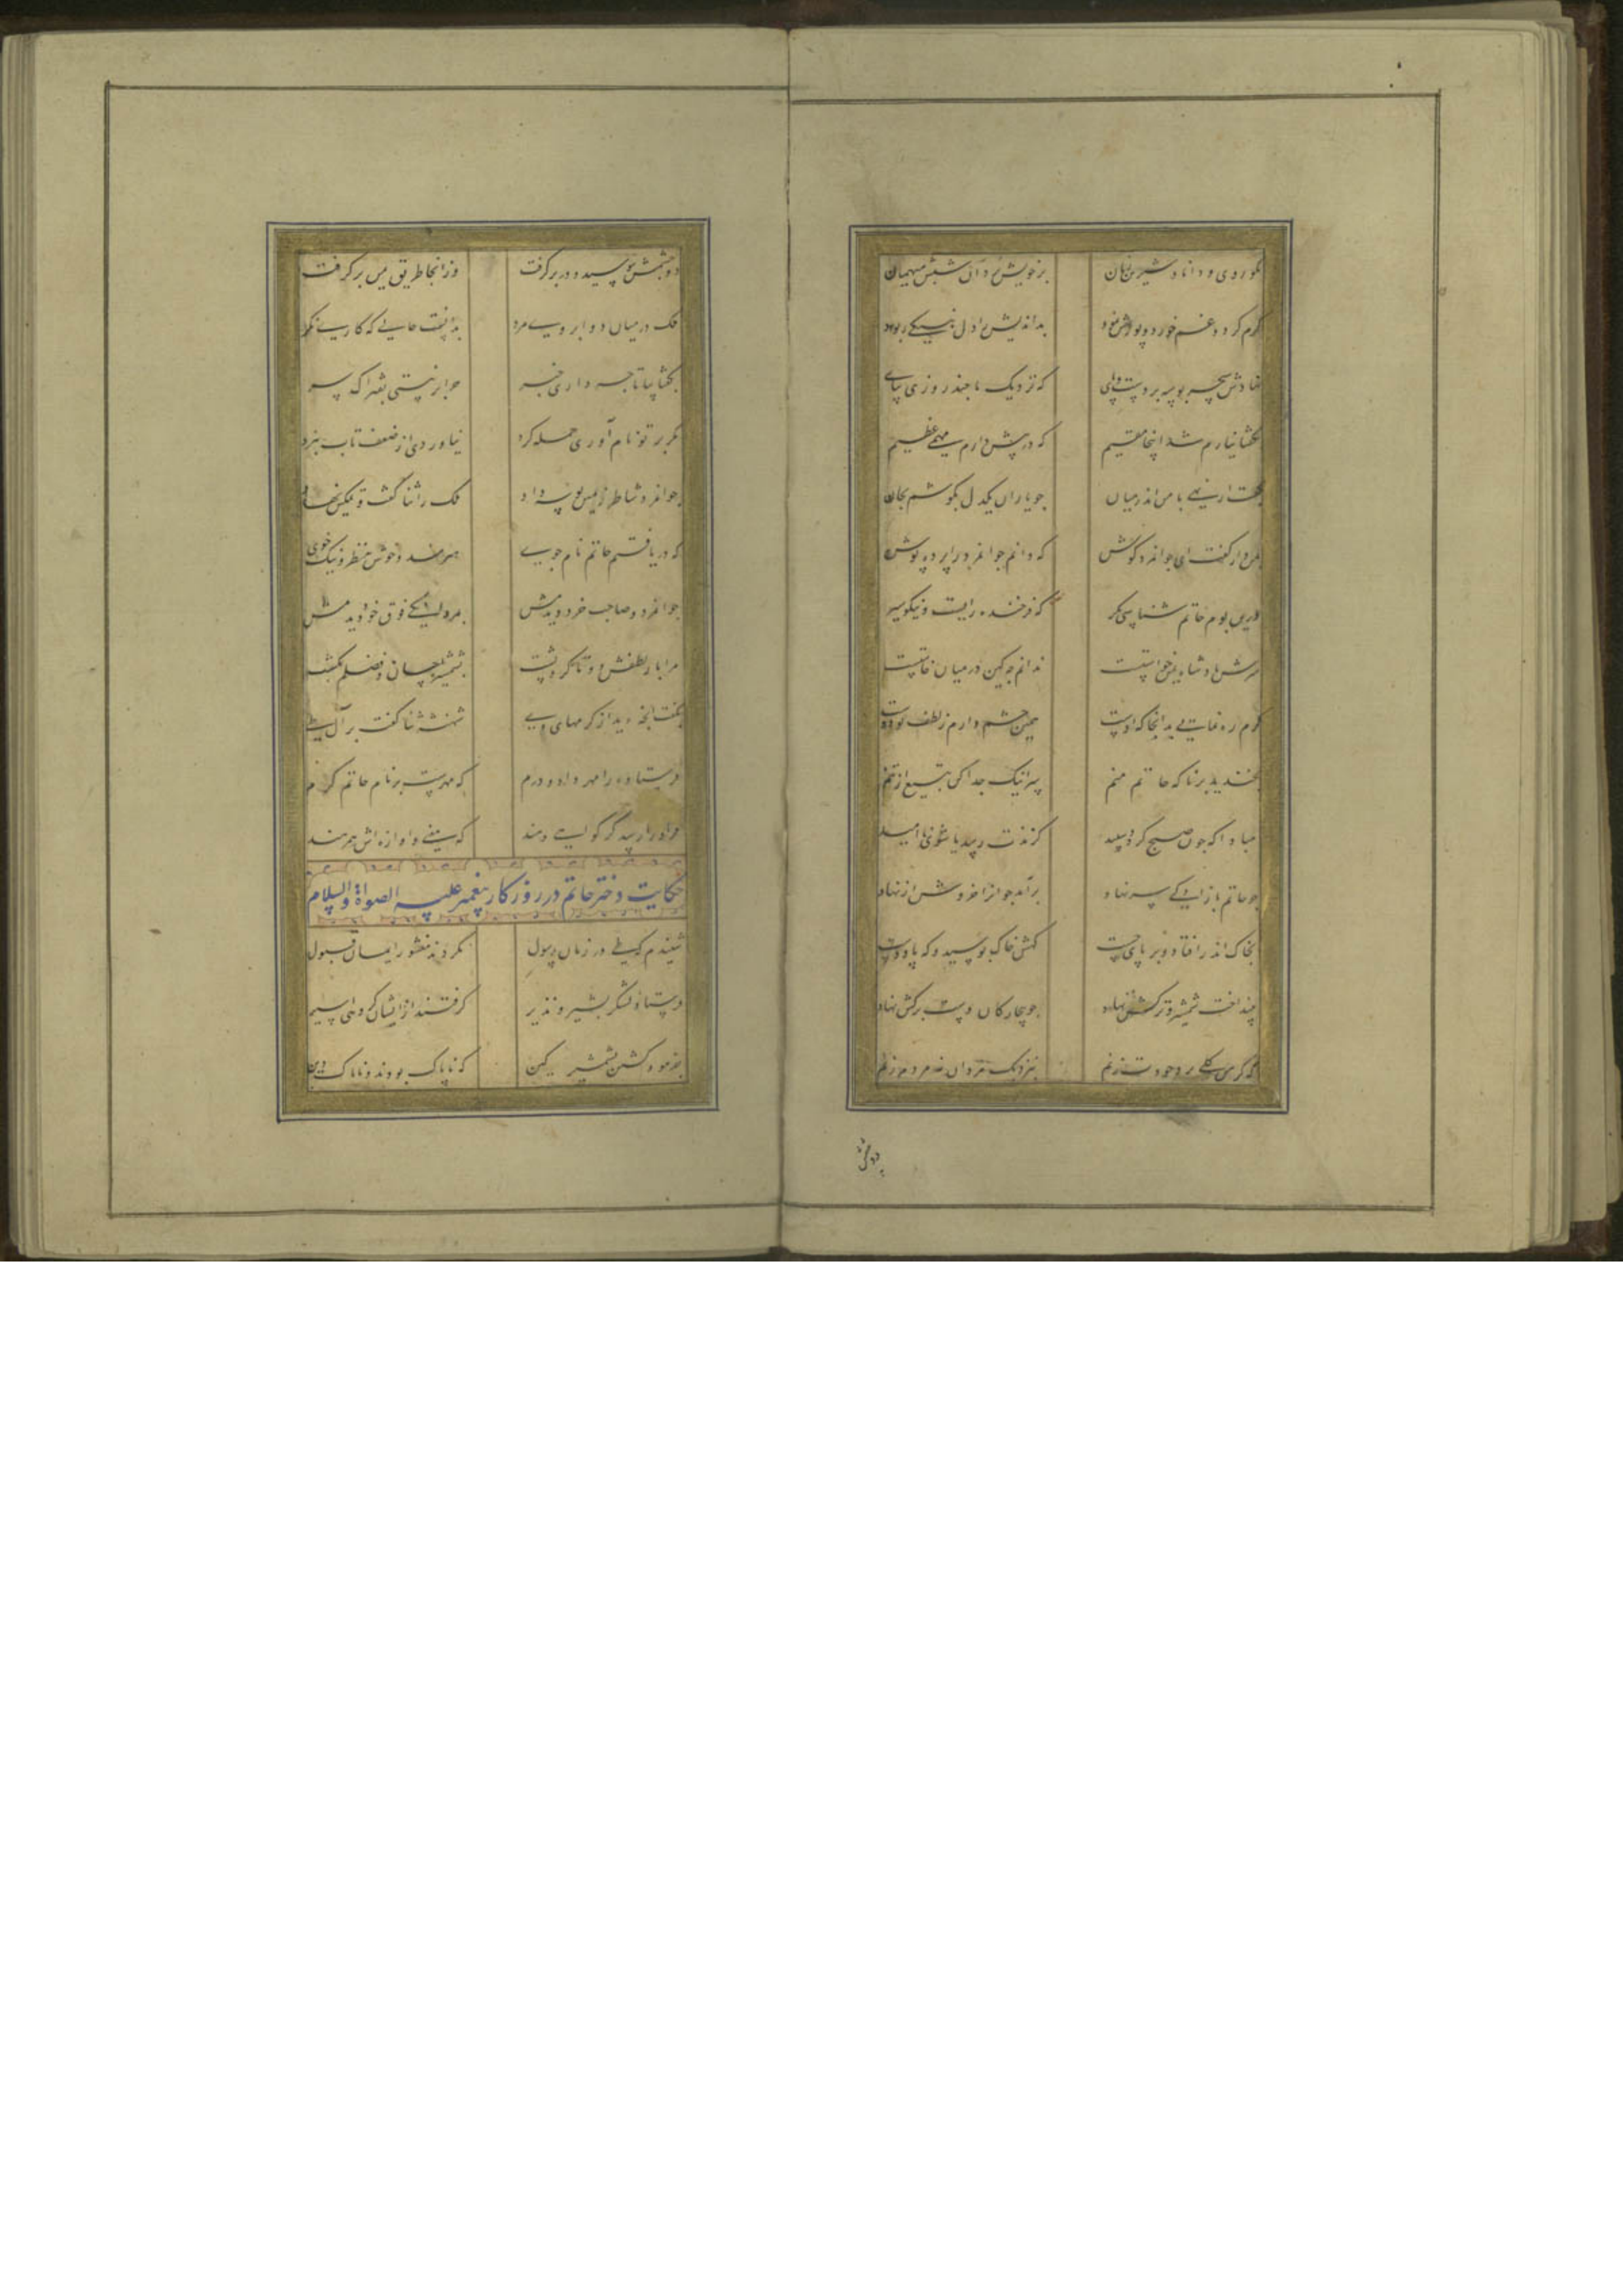 نکوروی و دانا و شیرین زبان
بر خویش برد آن شبش میهمان
کرم کرد و غم خورد و پوزش نمود
بداندیش را دل بنیکی ربود
نهادش سحر بوسه بر دست و پای
که نزدیک ما چند روزی بپای
بگفتا نیارم شد اینجا مقیم
که در پیش دارم مهمی عظیم
بگفت ار نهی با من اندر میان
چو یاران یکدل بکوشم بجان
بمن دار گفت ای جوانمرد گوش
که دانم جوانمرد را پرده پوش
درین بوم حاتم شناسی مگر
که فرخنده رایست و نیکو سیر
سرش پادشاه یمن خواستست
ندانم چه کین در میان خاستست
گرم ره نمایی بدانجا که اوست
همین چشم دارم ز لطف تو دوست
بخندید برنا که حاتم منم
سر اینک جدا کن بتیغ از تنم
مبادا که چون صبح گردد سپید
گزندت رسد یا شوی نا امید
چو حاتم بازادگی سر نهاد
برآمد جوانرا خروش از نهاد
بخاک اندر افتاد و بر پای جست
گهش خاک بوسید و گه پا و دست
بینداخت شمشیر و ترکش نهاد
چو بیچارگان دست برکش نهاد
که گر من گلی بر وجودت زنم
بنزدیک مردان نه مردم زنم
دو چشمش ببوسید و در بر گرفت
وز انجا طریق یمن بر گرفت
ملک در میان دو ابروی مرد
بدانست حالی که کاری نکرد
بگفتا بیا تا چه داری خبر
چرا سر نبستی بفتراک بر
مگر بر تو نام آوری حمله کرد
نیاوردی از ضعف تاب نبرد
جوانمرد شاطر زمین بوسه داد
ملک را ثنا گفت و تمکین نهاد
که دریافتم حاتم نام جوی
هنرمند و خوش منظر و نیک خوی
جوانمرد و صاحب خرد دیدمش
بمردانگی فوق خود دیدمش
مرا بار لطفش دو تا کرد پشت
بشمشیر احسان و فضلم بکشت
بگفت آنچه دید از کرمهای وی
شهنشه ثنا گفت بر آل طی
فرستاده را مهر داد و درم
که مهرست بر نام حاتم کرم
مراو را رسد گر گواهی دهند
که معنی و آوازه اش همرهند
حکایت دختر حاتم در روزگار پیغمبر علیه الصلواة والسلام
شنیدم که طی در زمان رسول
نکردند منشور ایمان قبول
فرستاد لشکر بشیر و نذیر
گرفتند از ایشان گروهی اسیر
بفرمود کشتن بشمشیر کین
که ناپاک بودند و ناپاک دین
دو چشمش